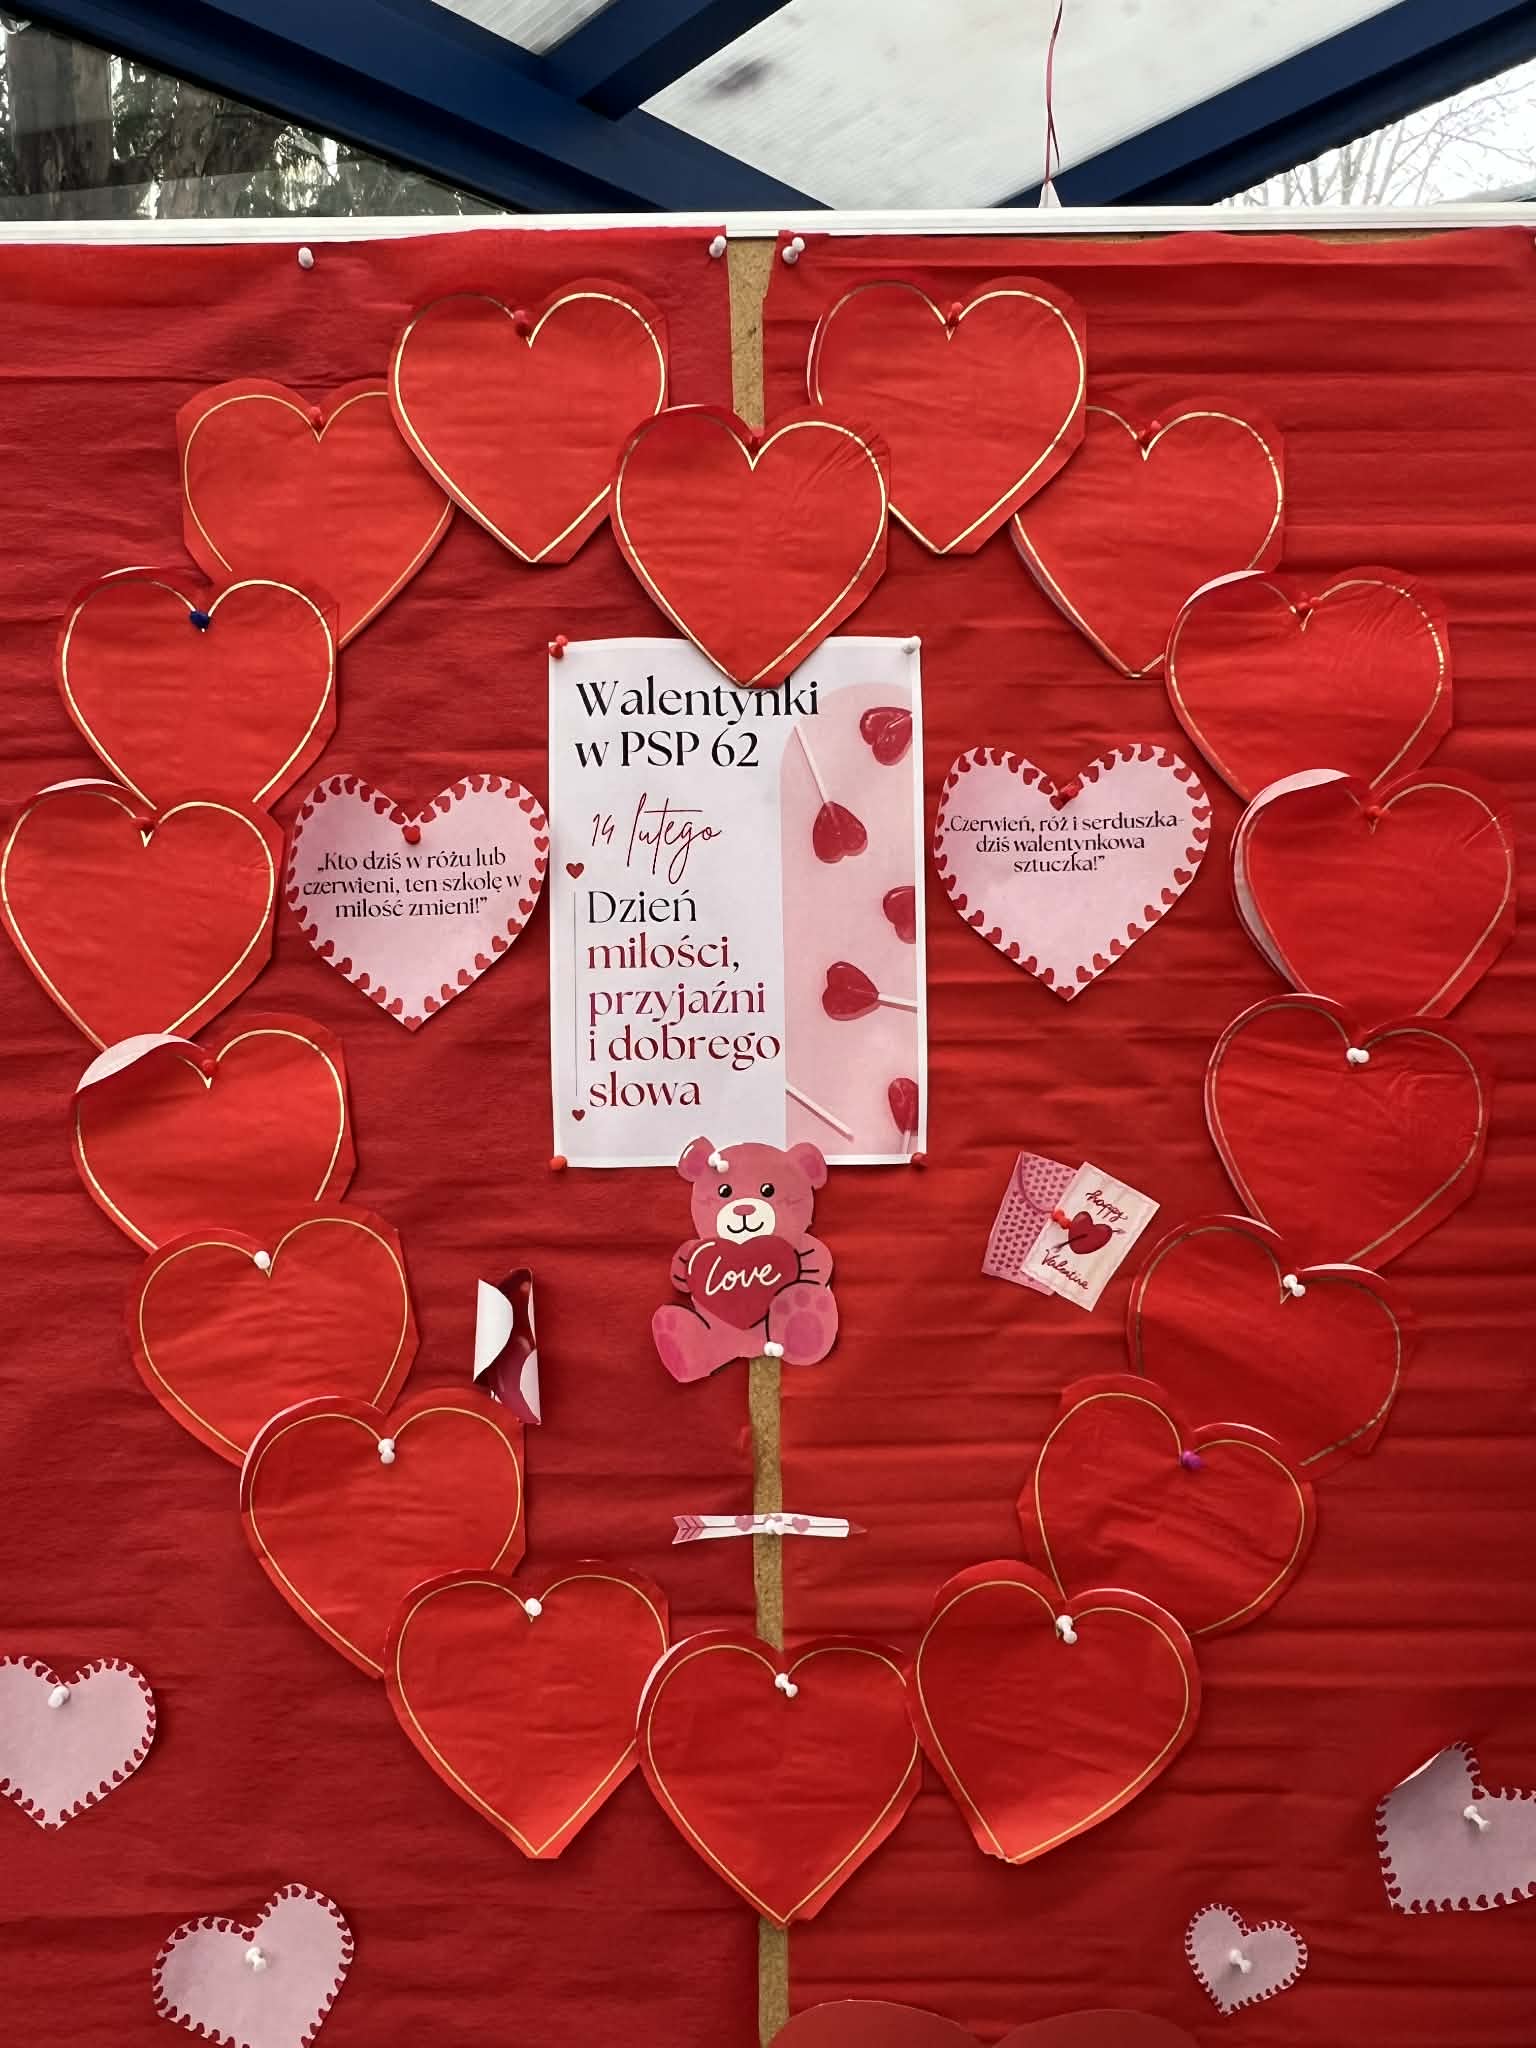 Walentynki
w PSP 62
14 lutego
Dzień
miłości,
przyjaźni
i dobrego
słowa
„Kto dziś w różu lub
czerwieni, ten szkołę w
miłość zmieni!”
„Czerwień, róż i serduszka-
dziś walentynkowa
sztuczka!”
love
happy
Valentine